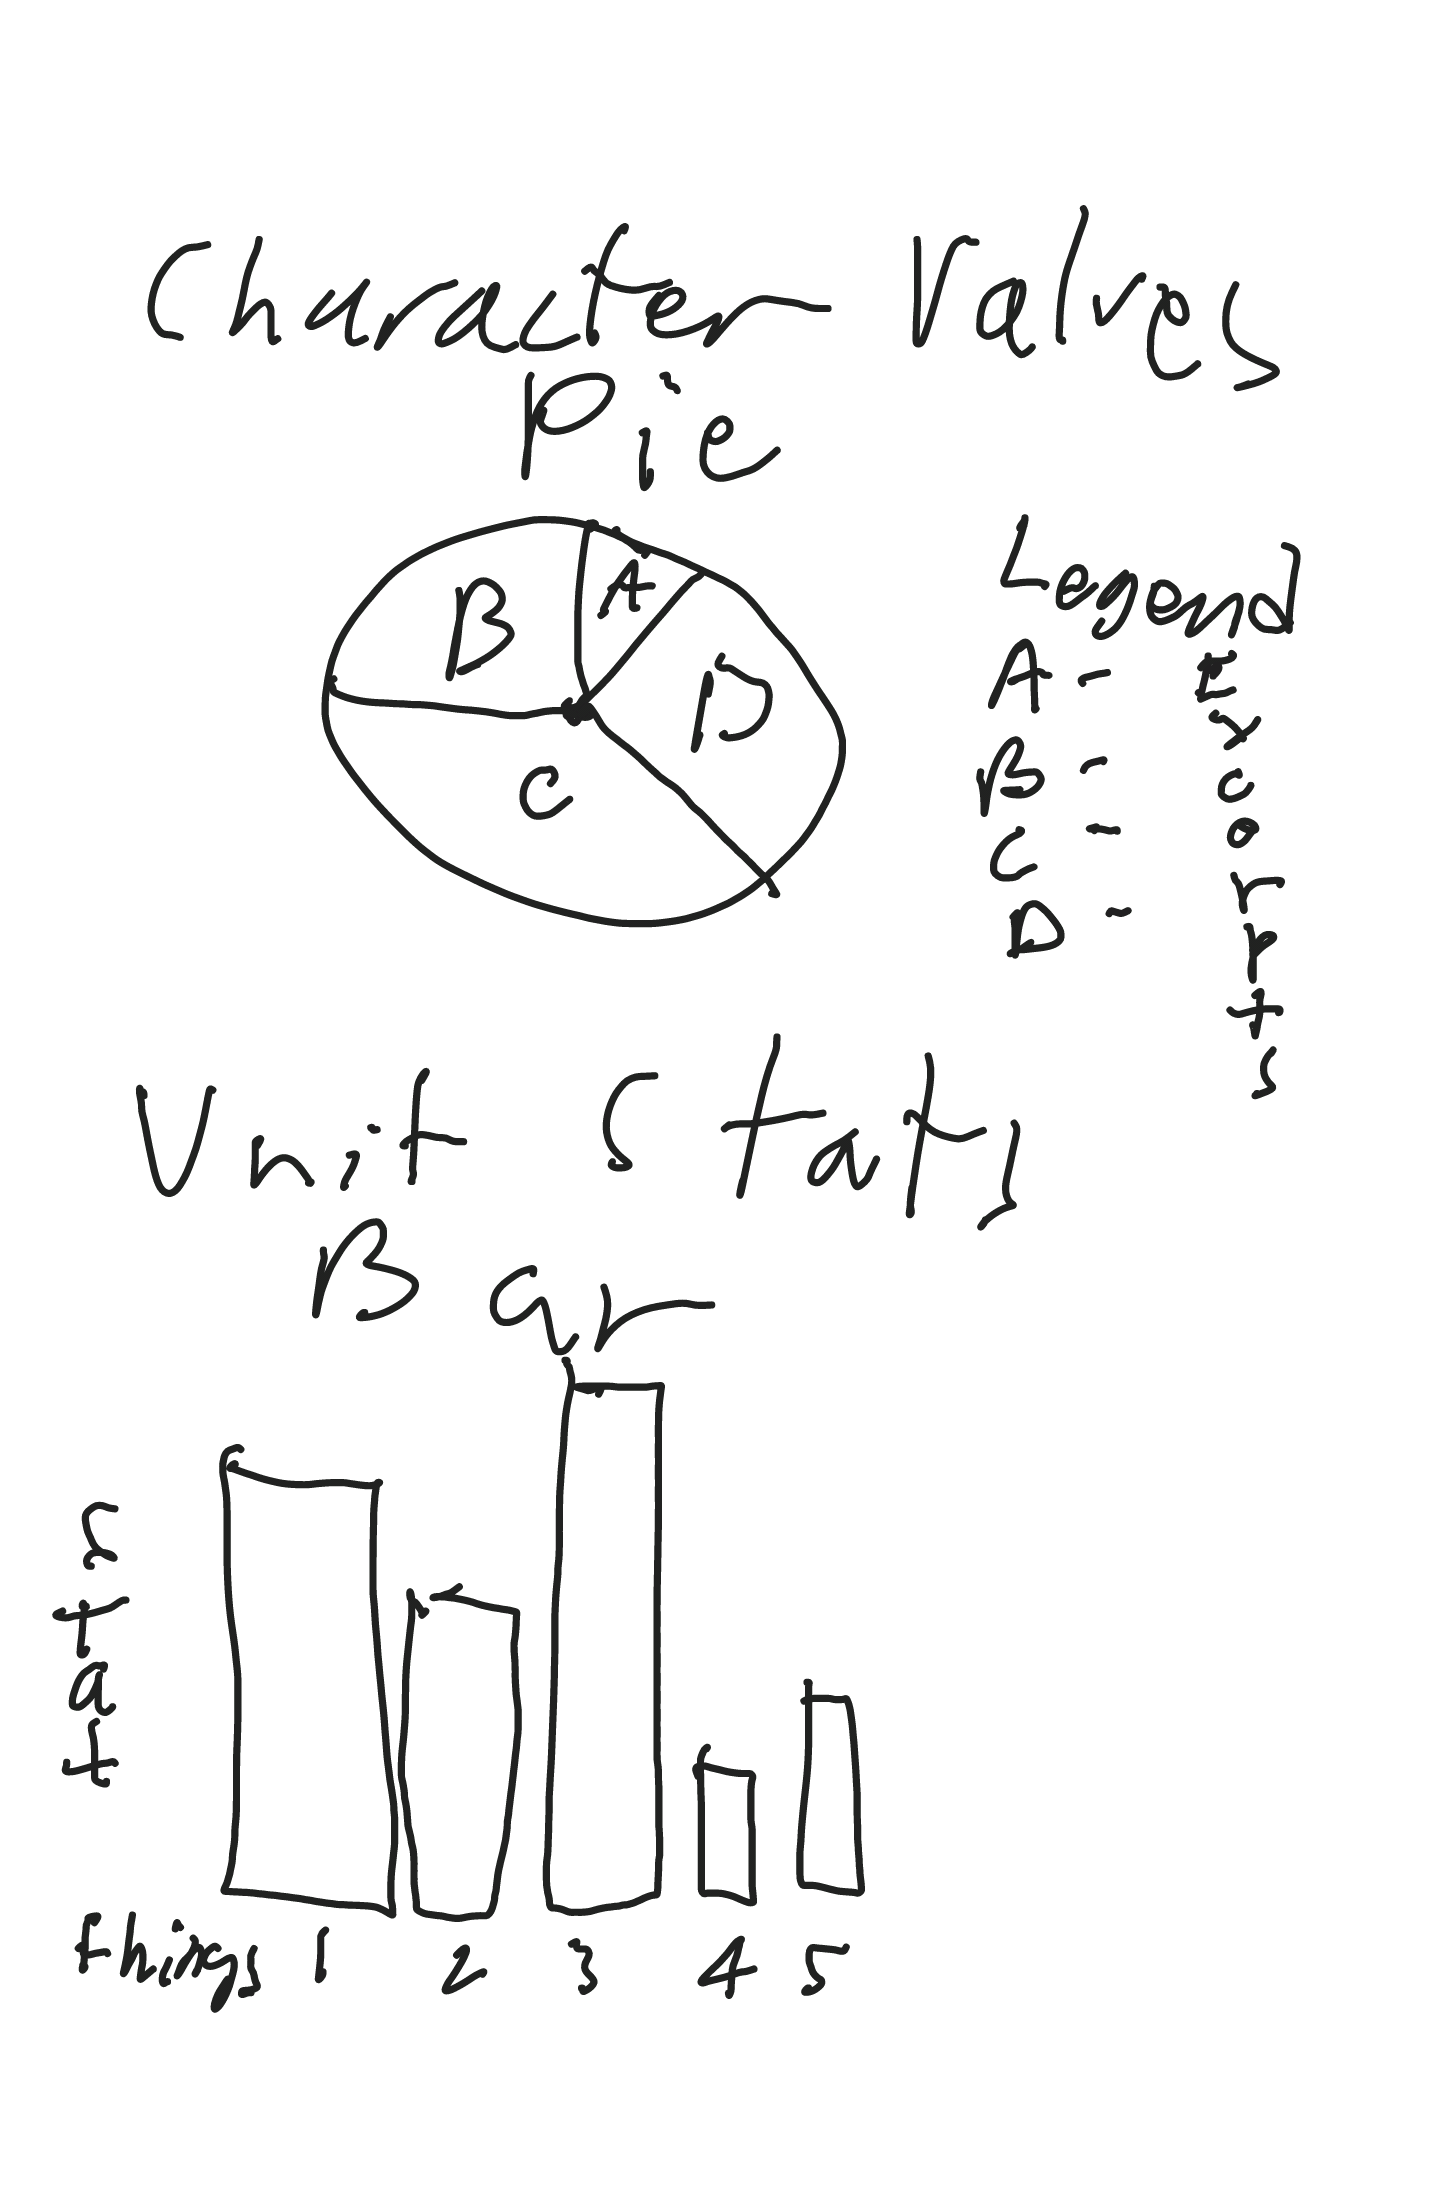 Character Values
Pie
B
A
D
C
Legend
A -
B -
C -
D -
Excorpts
Unit Stats
Bar
Stat
things 1 2 3 4 5